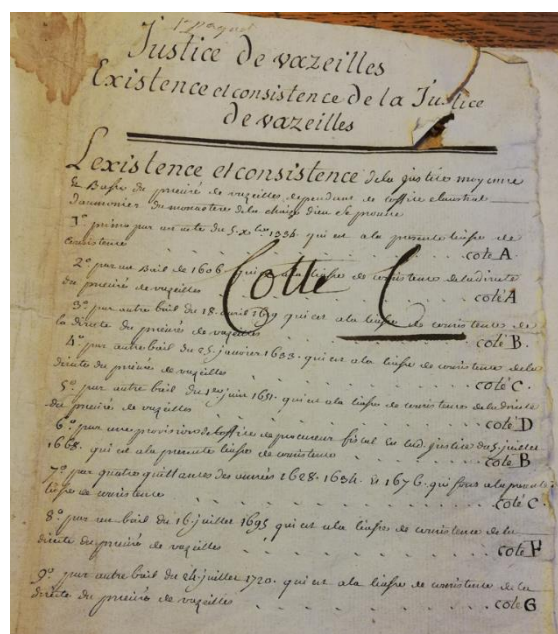 1er paquet
Justice de vazeilles
Existence et consistence de la Justice
de vazeilles
L'existence et consistence de la justice moyenne
& Basse du prieuré de vazeilles dependant de l'office claustral
d'aumonier du monastere de la chaise dieu se prouve
1º. primo par un acte du 5. xbre 1334 qui est a la presente liasse de
consistence . . . coté A
2º. par un Bail de 1606 qui est a la liasse de consistence de la directe
du prieuré de vazeilles . . . coté A
Cotte C
3º. par autre bail du 18. avril qui est a la liasse de consistence de
la directe du prieuré de vazeilles . . . coté B.
4º. par autre bail du 25 janvier 1633. qui est a la liasse de consistence de la
directe du prieuré de vazeilles . . . coté C.
5º. par autre bail du juin 1651. qui est a la liasse de consistence de la directe
du prieuré de vazeilles . . . coté D
6º. par une provision de l'office de procureur fiscal en lad. justice du 5. juillet
1668. qui est a la presente liasse de consistence . . . coté B
7º. par quatre quittances des années 1628. 1634. & 1676. qui sont a la presente
liasse de consistence . . . coté C.
8º. par un bail du 16. juillet 1695 qui est a la liasse de consistence de la
directe du prieuré de vazeilles . . . coté F
9º. par autre bail du 24. juillet 1720. qui est a la liasse de consistence de la
directe du prieuré de vazeilles . . . coté G